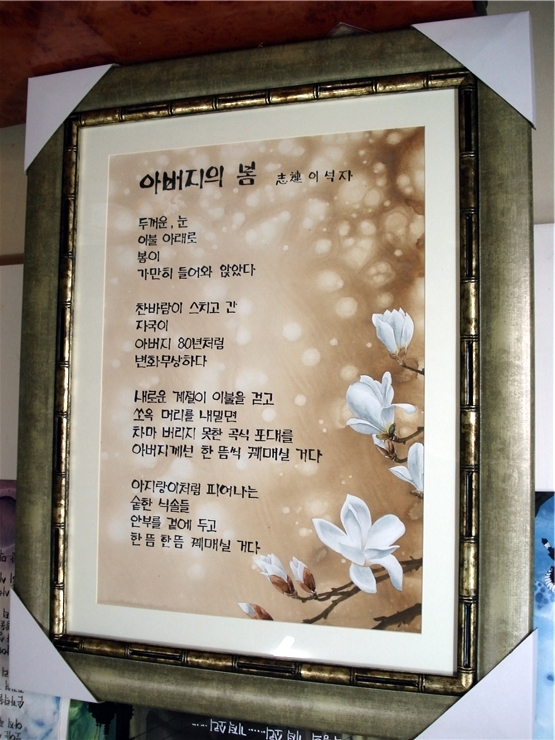 아버지의 봄 志連 이석자
두꺼운, 눈
이불 아래로
봄이
가만히 들어와 앉았다
찬바람이 스치고 간
자국이
아버지 80년처럼
변화무상하다
새로운 계절이 이불을 걷고
쏘옥 머리를 내밀면
차마 버리지 못한 곡식 포대를
아버지께선 한 뜸씩 꿰매실 거다
아지랑이처럼 피어나는
숱한 식솔들
안부를 곁에 두고
한 뜸 한 뜸 꿰매실 거다